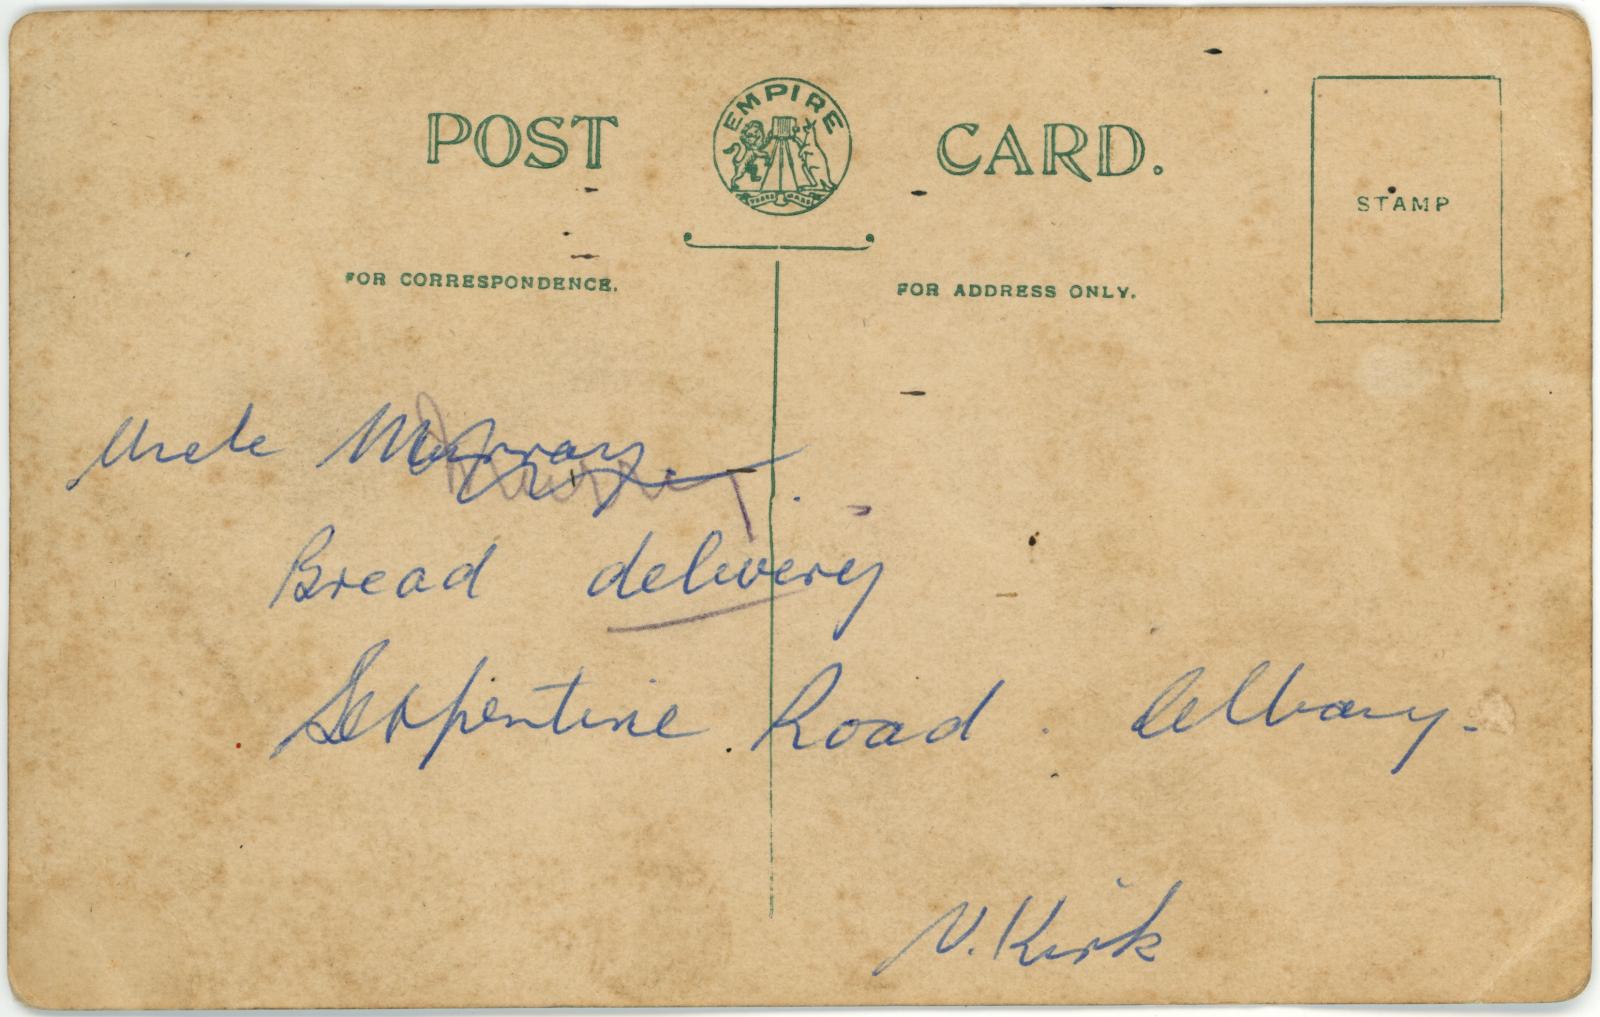 POST CARD.
EMPIRE
TRADE MARK
STAMP
FOR CORRESPONDENCE.
FOR ADDRESS ONLY.
Uncle Murray.
Bread delivery
Serpentine Road. Albany.
V. Kirk